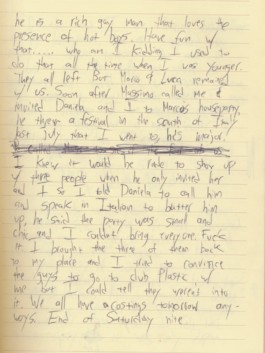 he is a rich guy man that loves the
presence of hot boys. Have fun w/
that..... who am I kidding I used to
do that all the time when I was younger.
They all left but Mario & Luca remained
w/ us. Soon after Massimo called me &
invited Daniela and I to Marcos houseparty,
he threw a festival in the south of Italy
last July that I went to, he's major!
I knew it would be rude to show up
w/ three people when he only invited her
and I so I told Daniela to call him
and speak in Italian to butter him
up, he said the party was small and
chic and I couldn't bring everyone. Fuck
it I brought the three of them back
to my place and I tried to convince
the guys to go to club Plastic w/
me but I could tell they weren't into
it. We all have castings tomorrow any-
ways. End of Saturday nite.